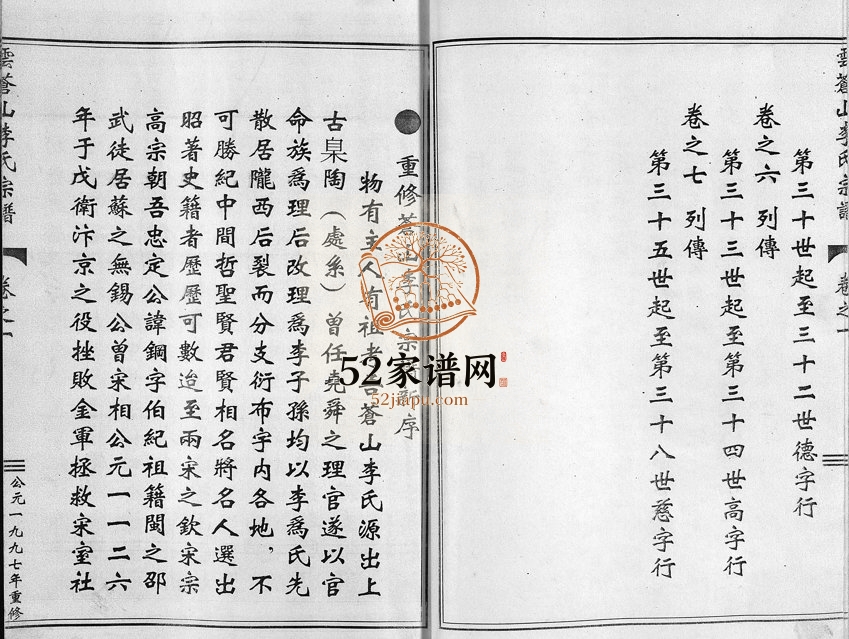 第三十世起至三十二世德字行
卷之六 列傳
第三十三世起至第三十四世高字行
卷之七 列傳
第三十五世起至第三十八世慈字行
雲蒼山李氏宗譜
卷之一
重修蒼山李氏宗 新序
物有主人有祖考 吾蒼山李氏源出上
古臯陶（處系）曾任堯舜之理官遂以官
命族爲理后改理爲李子孫均以李爲氏先
散居隴西后裂而分支衍布宇内各地，不
可勝紀中間哲聖賢君賢相名將名人選出
昭著史籍者歷歷可數迨至兩宋之欽宋宗
高宗朝吾忠定公諱鋼字伯紀祖籍閩之邵
武徒居蘇之無錫公曾宋相公元一一二六
年于戊衛汴京之役挫敗金軍拯救宋室社
雲蒼山李氏宗譜
卷之一
公元一九九七年重修
52家谱网
52jiapu.com